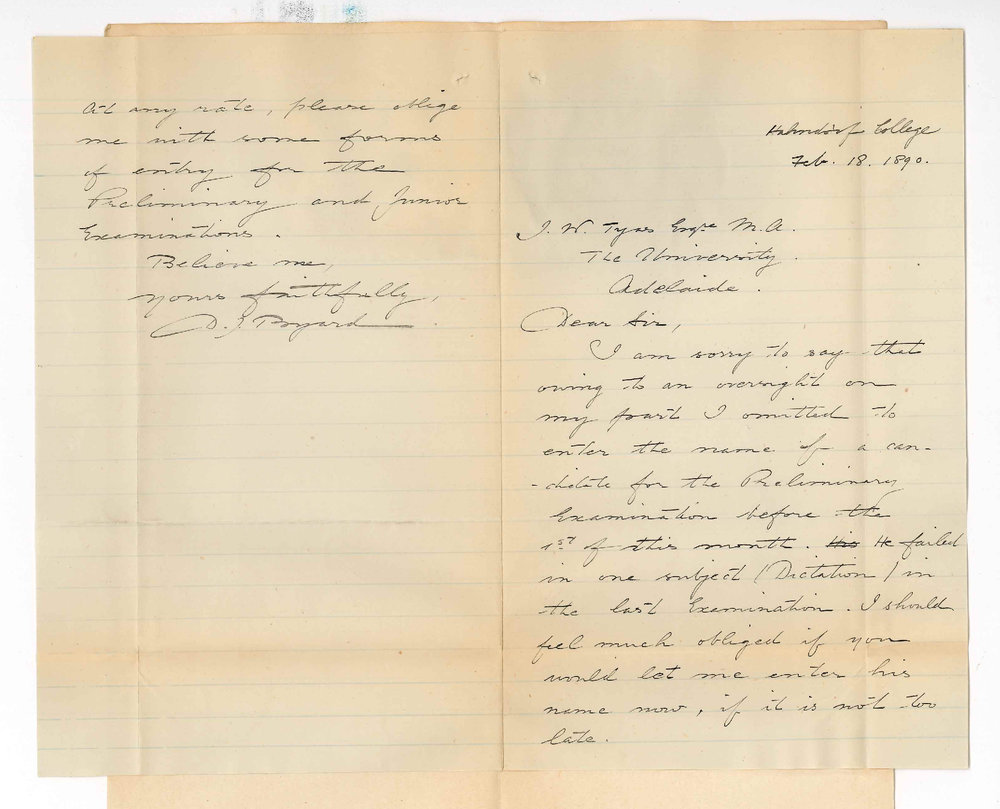 Hahndorf College
Feb. 18. 1890.
J. W. Tyas Esqre M.A.
The University.
Adelaide.
Dear Sir,
I am sorry to say that
owing to an oversight on
my part I omitted to
enter the name of a can-
-didate for the Preliminary
Examination before the
1st of this month. He failed
in one subject (Dictation) in
the last Examination. I should
feel much obliged if you
would let me enter his
name now, if it is not too
late.
At any rate, please oblige
me with some forms
of entry for the
Preliminary and Junior
Examinations.
Believe me,
yours faithfully,
D. J. Byard